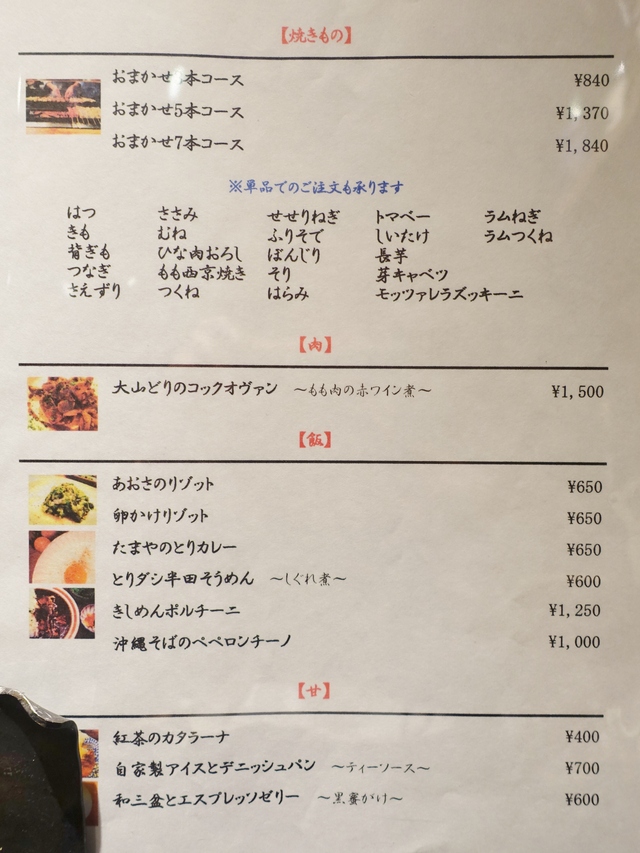 【焼きもの】
おまかせ 本コース ¥840
おまかせ5本コース ¥1,370
おまかせ7本コース ¥1,840
※単品でのご注文も承ります
はつ ささみ せせりねぎ トマベー ラムねぎ
きも むね ふりそで しいたけ ラムつくね
背ぎも ひな肉おろし ぼんじり 長芋
つなぎ もも西京焼き そり 芽キャベツ
さえずり つくね はらみ モッツァレラズッキーニ
【肉】
大山どりのコックオヴァン ～もも肉の赤ワイン煮～ ¥1,500
【飯】
あおさのリゾット ¥650
卵かけリゾット ¥650
たまやのとりカレー ¥650
とりダシ半田そうめん ～しぐれ煮～ ¥600
きしめんポルチーニ ¥1,250
沖縄そばのペペロンチーノ ¥1,000
【甘】
紅茶のカタラーナ ¥400
自家製アイスとデニッシュパン ～ティーソース～ ¥700
和三盆とエスプレッソゼリー ～黒蜜がけ～ ¥600